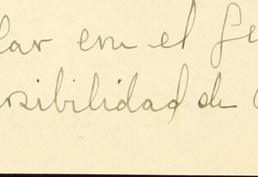 lar en el
sibilidad de